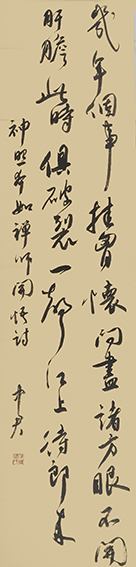 幾年個事挂胷懷問盡諸方眼不開
肝膽此時俱破裂一聲江上侍郎来
神照本如禪師開悟詩